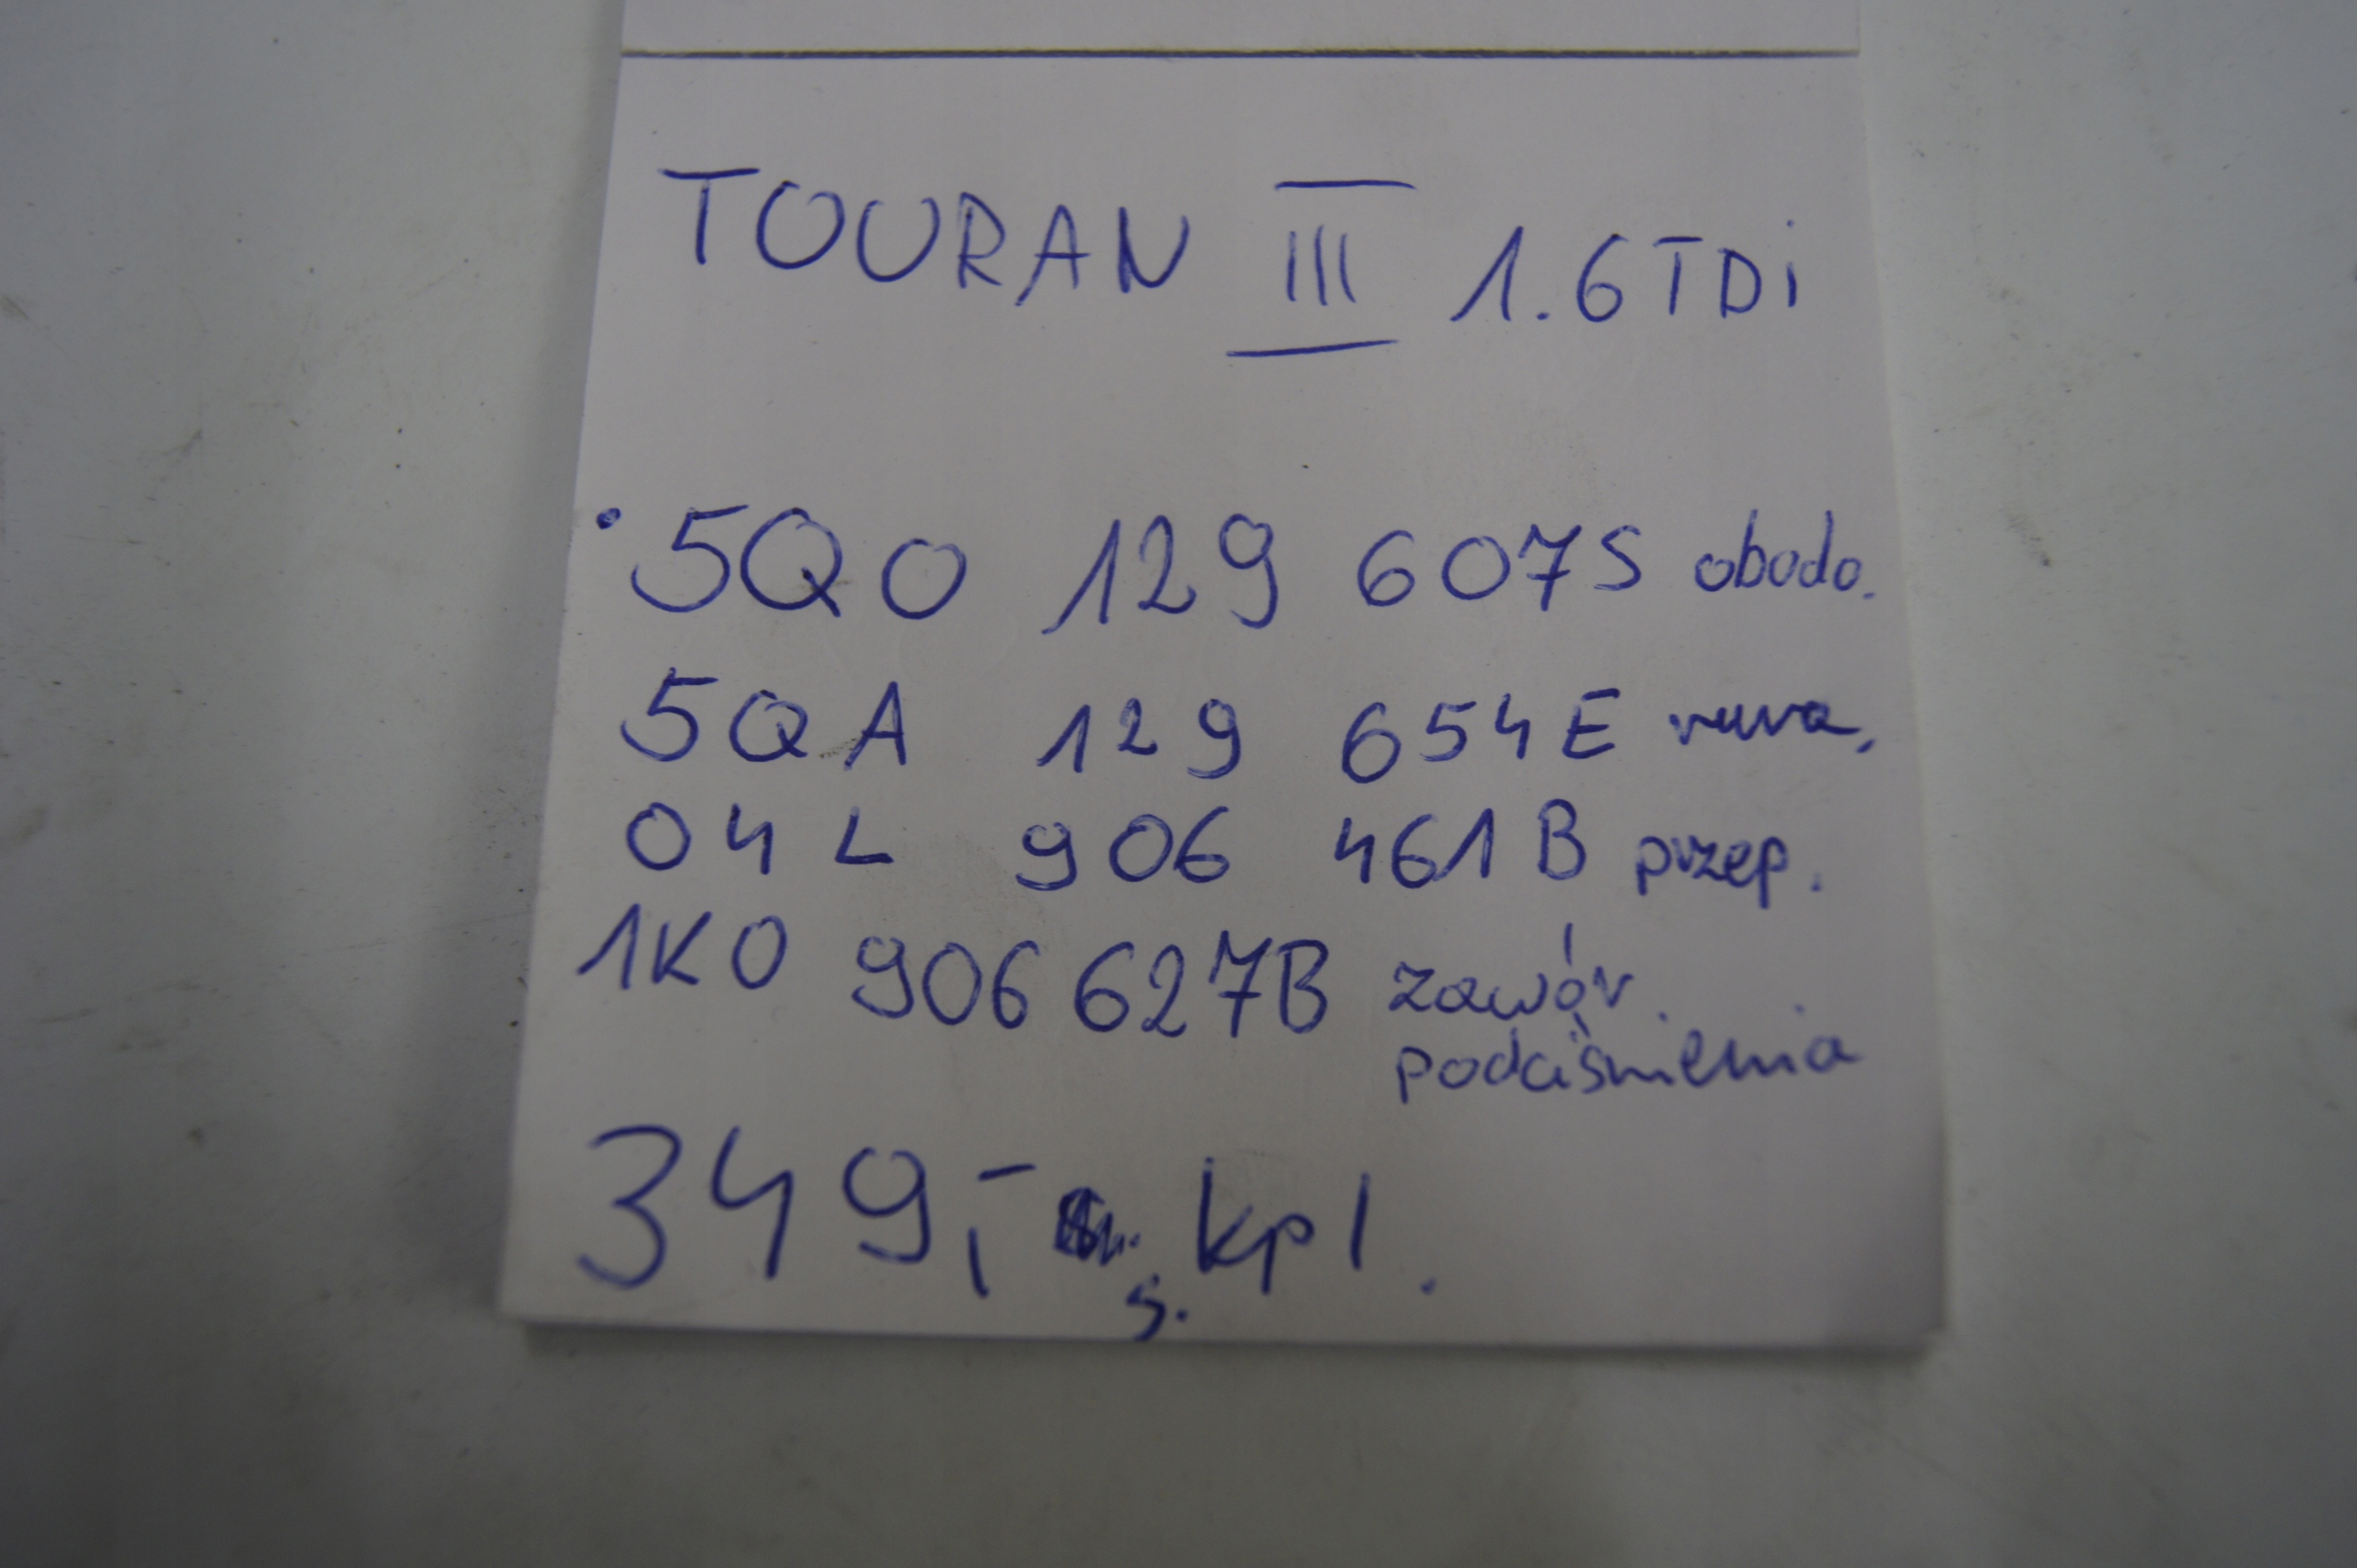 TOURAN III 1.6 TDi
5Q0 129 607S obudo.
5QA 129 654E rura,
04L 906 461B przep.
1K0 906 627B zawór
podciśnienia
349,- kpl.
s.